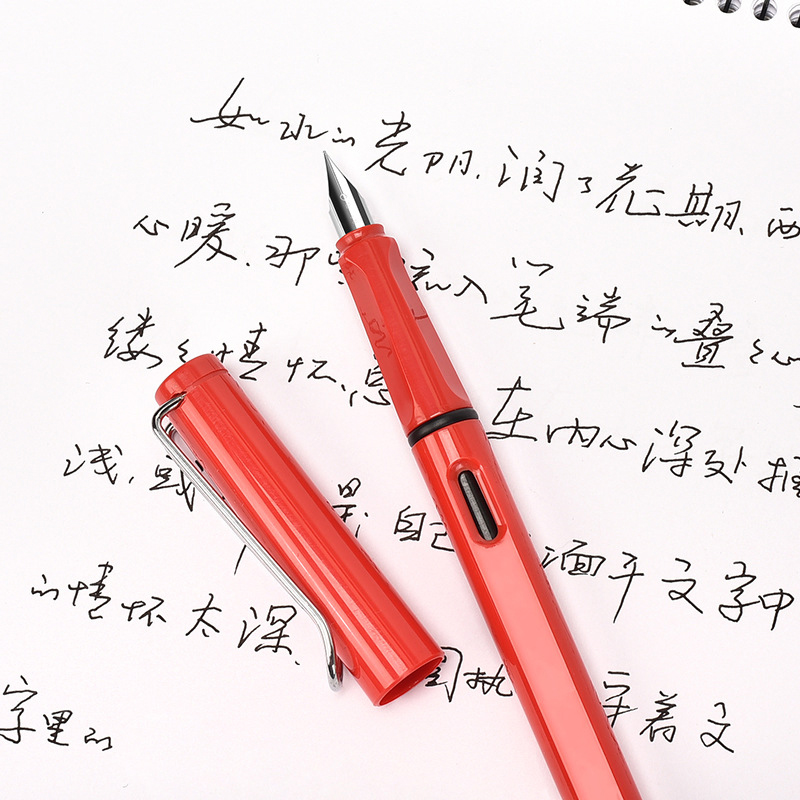 如水的光阴,润了花期,两
心暖,那 流入笔端的叠
缕 情怀,总 在内心深处
浅, 是 自己 面于文字中
的情怀太深, 固执 守着文
字里的